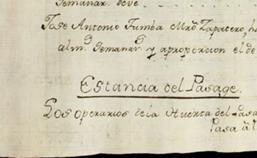 Semanar. deve
Jose Antonio Tumba Mro Zapatero, h
al mo. Semanar y aproporcion el de
Estancia del Pasage.
Los operarios de la Huerta del Pasa
Pasa al